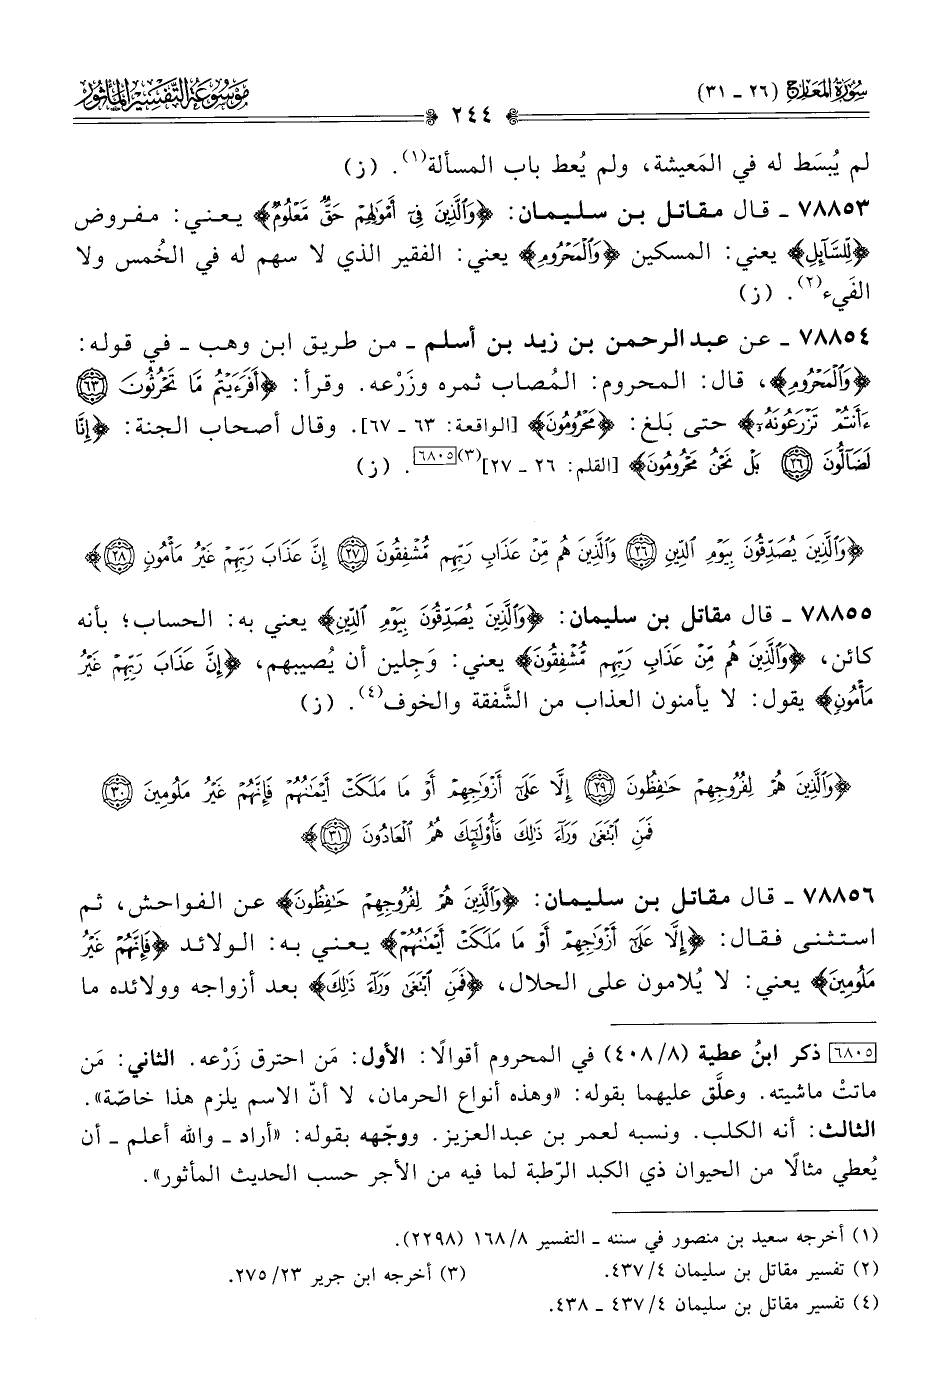 سُورَةُ المَعَارِج (٢٦ - ٣١)
٢٤٤
مَوْسُوعَة التَّفْسِيرِ المَأْثُور
لم يُبسَط له في المَعيشة، ولم يُعط باب المسألة(١). (ز)
٧٨٨٥٣ - قال مقاتل بن سليمان: ﴿وَٱلَّذِينَ فِىٓ أَمْوَٰلِهِمْ حَقٌّ مَّعْلُومٌ﴾ يعني: مفروض
﴿لِّلسَّآئِلِ﴾ يعني: المسكين ﴿وَٱلْمَحْرُومِ﴾ يعني: الفقير الذي لا سهم له في الخُمس ولا
الفَيء(٢). (ز)
٧٨٨٥٤ - عن عبدالرحمن بن زيد بن أسلم - من طريق ابن وهب - في قوله:
﴿وَٱلْمَحْرُومِ﴾، قال: المحروم: المُصاب ثمره وزَرْعه. وقرأ: ﴿أَفَرَءَيْتُم مَّا تَحْرُثُونَ ٦٣
ءَأَنتُمْ تَزْرَعُونَهُۥٓ﴾ حتى بَلغ: ﴿مَحْرُومُونَ﴾ [الواقعة: ٦٣ - ٦٧]. وقال أصحاب الجنة: ﴿إِنَّا
لَضَآلُّونَ ٢٦ بَلْ نَحْنُ مَحْرُومُونَ﴾ [القلم: ٢٦ - ٢٧](٣)[٦٨٠٥]. (ز)
﴿وَٱلَّذِينَ يُصَدِّقُونَ بِيَوْمِ ٱلدِّينِ ٢٦ وَٱلَّذِينَ هُم مِّنْ عَذَابِ رَبِّهِم مُّشْفِقُونَ ٢٧ إِنَّ عَذَابَ رَبِّهِمْ غَيْرُ مَأْمُونٍ ٢٨﴾
٧٨٨٥٥ - قال مقاتل بن سليمان: ﴿وَٱلَّذِينَ يُصَدِّقُونَ بِيَوْمِ ٱلدِّينِ﴾ يعني به: الحساب؛ بأنه
كائن، ﴿وَٱلَّذِينَ هُم مِّنْ عَذَابِ رَبِّهِم مُّشْفِقُونَ﴾ يعني: وَجِلين أن يُصيبهم، ﴿إِنَّ عَذَابَ رَبِّهِمْ غَيْرُ
مَأْمُونٍ﴾ يقول: لا يأمنون العذاب من الشَّفقة والخوف(٤). (ز)
﴿وَٱلَّذِينَ هُمْ لِفُرُوجِهِمْ حَٰفِظُونَ ٢٩ إِلَّا عَلَىٰٓ أَزْوَٰجِهِمْ أَوْ مَا مَلَكَتْ أَيْمَٰنُهُمْ فَإِنَّهُمْ غَيْرُ مَلُومِينَ ٣٠
فَمَنِ ٱبْتَغَىٰ وَرَآءَ ذَٰلِكَ فَأُو۟لَٰٓئِكَ هُمُ ٱلْعَادُونَ ٣١﴾
٧٨٨٥٦ - قال مقاتل بن سليمان: ﴿وَٱلَّذِينَ هُمْ لِفُرُوجِهِمْ حَٰفِظُونَ﴾ عن الفواحش، ثم
استثنى فقال: ﴿إِلَّا عَلَىٰٓ أَزْوَٰجِهِمْ أَوْ مَا مَلَكَتْ أَيْمَٰنُهُمْ﴾ يعني به: الولائد ﴿فَإِنَّهُمْ غَيْرُ
مَلُومِينَ﴾ يعني: لا يُلامون على الحلال، ﴿فَمَنِ ٱبْتَغَىٰ وَرَآءَ ذَٰلِكَ﴾ بعد أزواجه وولائده ما
[٦٨٠٥] ذكر ابنُ عطية (٤٠٨/٨) في المحروم أقوالًا: الأول: مَن احترق زَرْعه. الثاني: مَن
ماتتْ ماشيته. وعلَّق عليهما بقوله: «وهذه أنواع الحرمان، لا أنّ الاسم يلزم هذا خاصّة».
الثالث: أنه الكلب. ونسبه لعمر بن عبدالعزيز. ووجّهه بقوله: «أراد - والله أعلم - أن
يُعطي مثالًا من الحيوان ذي الكبد الرّطبة لما فيه من الأجر حسب الحديث المأثور».
(١) أخرجه سعيد بن منصور في سننه - التفسير ١٦٨/٨ (٢٢٩٨).
(٢) تفسير مقاتل بن سليمان ٤٣٧/٤. (٣) أخرجه ابن جرير ٢٧٥/٢٣.
(٤) تفسير مقاتل بن سليمان ٤٣٧/٤ - ٤٣٨.